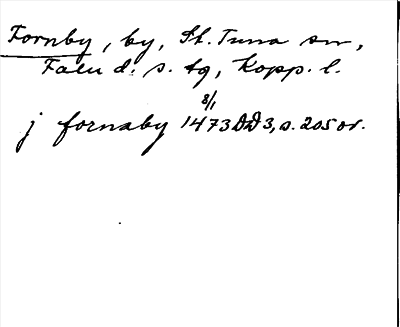 Fornby, by, St. Tuna sn,
Falu d. s. tg, Kopp. l.
8/1
j fornaby 1473 DD 3, s. 205 or.